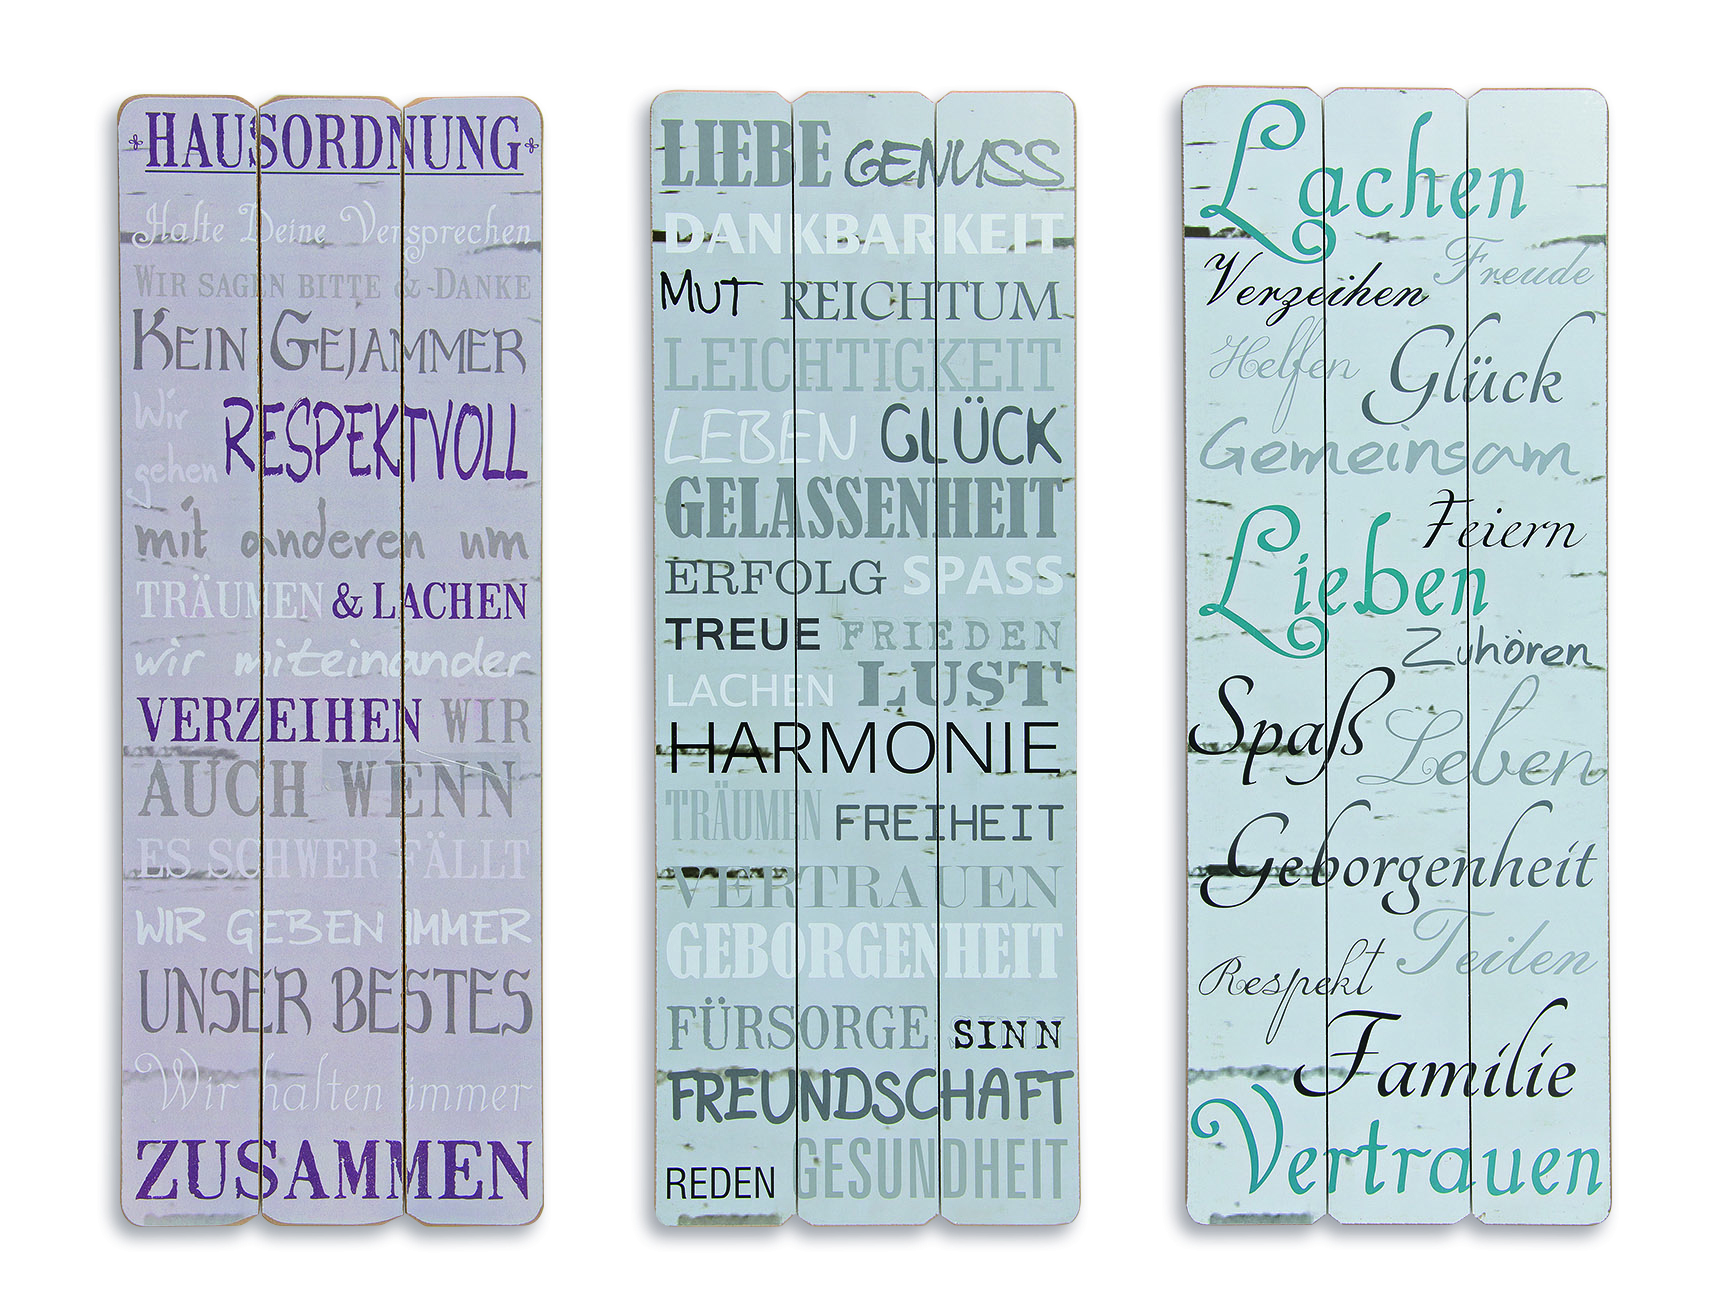 HAUSORDNUNG
Halte Deine Versprechen
WIR SAGEN BITTE & DANKE
KEIN GEJAMMER
Wir
gehen RESPEKTVOLL
mit anderen um
TRÄUMEN & LACHEN
wir miteinander
VERZEIHEN WIR
AUCH WENN
ES SCHWER FÄLLT
WIR GEBEN IMMER
UNSER BESTES
Wir halten immer
ZUSAMMEN
LIEBE GENUSS
DANKBARKEIT
MUT REICHTUM
LEICHTIGKEIT
LEBEN GLÜCK
GELASSENHEIT
ERFOLG SPASS
TREUE FRIEDEN
LACHEN LUST
HARMONIE
TRÄUMEN FREIHEIT
VERTRAUEN
GEBORGENHEIT
FÜRSORGE SINN
FREUNDSCHAFT
REDEN GESUNDHEIT
Lachen
Verzeihen Freude
Helfen Glück
Gemeinsam
Feiern
Lieben
Zuhören
Spaß Leben
Geborgenheit
Teilen
Respekt
Familie
Vertrauen